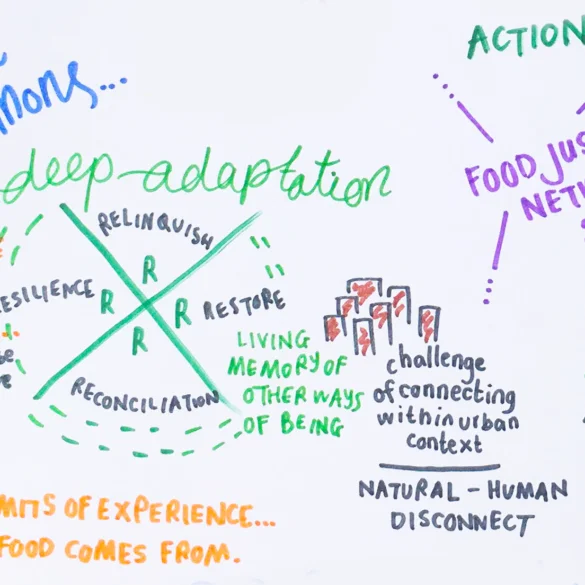 ACTION
deep-adaptation
FOOD
RELINQUISH
R
RESILIENCE R R RESTORE
R
RECONCILIATION
LIVING
MEMORY OF
OTHER WAYS
OF BEING
challenge
of connecting
within urban
context
NATURAL-HUMAN
DISCONNECT
OF EXPERIENCE...
FOOD COMES FROM.